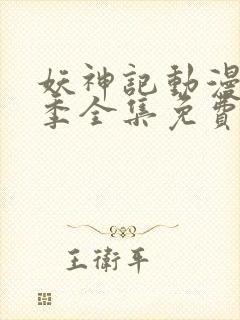 妖神記動漫
季全集免費
王衛平